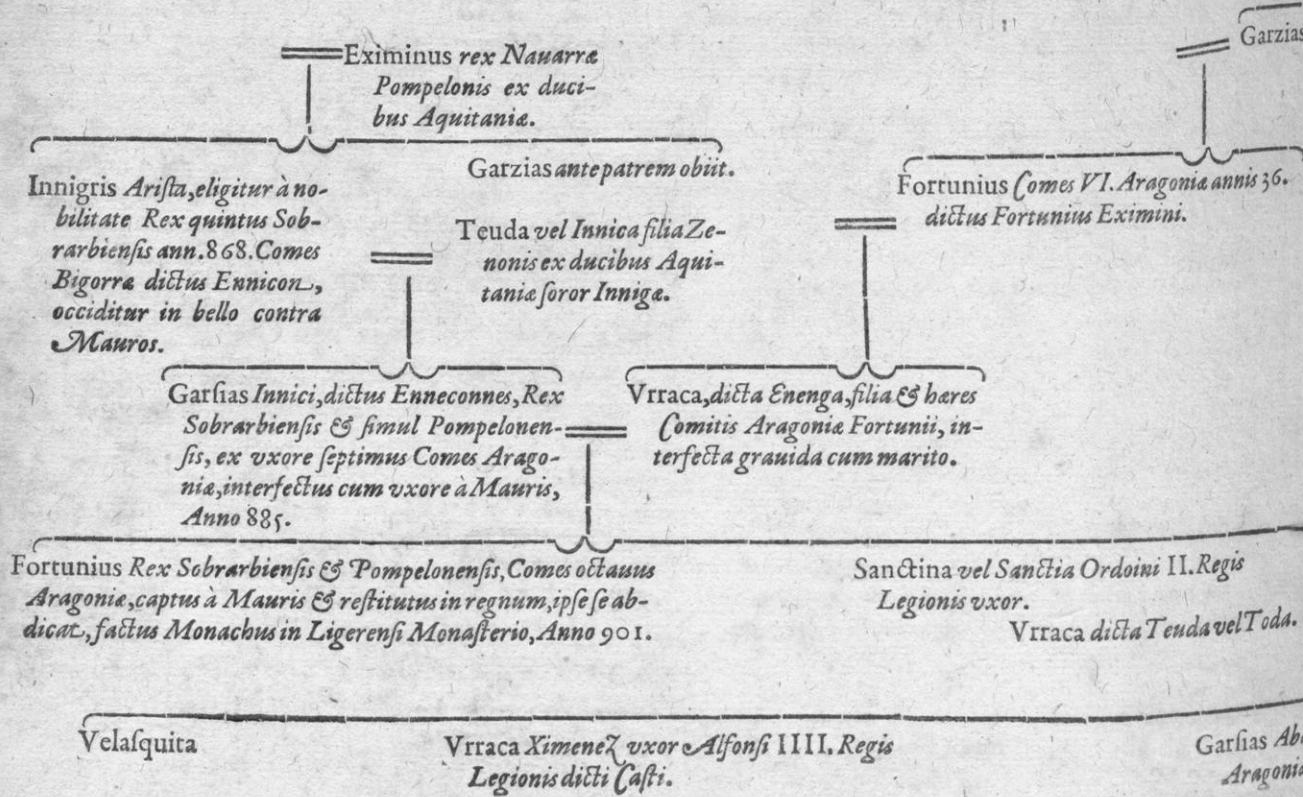 Garzias
Eximinus rex Nauarræ
Pompelonis ex duci-
bus Aquitaniæ.
Garzias ante patrem obiit.
Innigris Arista, eligitur à no-
bilitate Rex quintus Sob-
rarbiensis ann. 868. Comes
Bigorræ dictus Ennicon,
occiditur in bello contra
Mauros.
Teuda vel Innica filia Ze-
nonis ex ducibus Aqui-
taniæ soror Innigæ.
Fortunius Comes VI. Aragoniæ annis 36.
dictus Fortunius Eximini.
Garsias Innici, dictus Enneconnes, Rex
Sobrarbiensis & simul Pompelonen-
sis, ex vxore septimus Comes Arago-
niæ, interfectus cum vxore à Mauris,
Anno 885.
Vrraca, dicta Enenga, filia & hæres
Comitis Aragoniæ Fortunii, in-
terfecta grauida cum marito.
Fortunius Rex Sobrarbiensis & Pompelonensis, Comes octauus
Aragoniæ, captus à Mauris & restitutus in regnum, ipse se ab-
dicat, factus Monachus in Ligerensi Monasterio, Anno 901.
Sanctina vel Sanctia Ordoini II. Regis
Legionis vxor.
Vrraca dicta Teuda vel Toda.
Velasquita
Vrraca Ximenez vxor Alfonsi IIII. Regis
Legionis dicti Casti.
Garsias
Aragoniæ